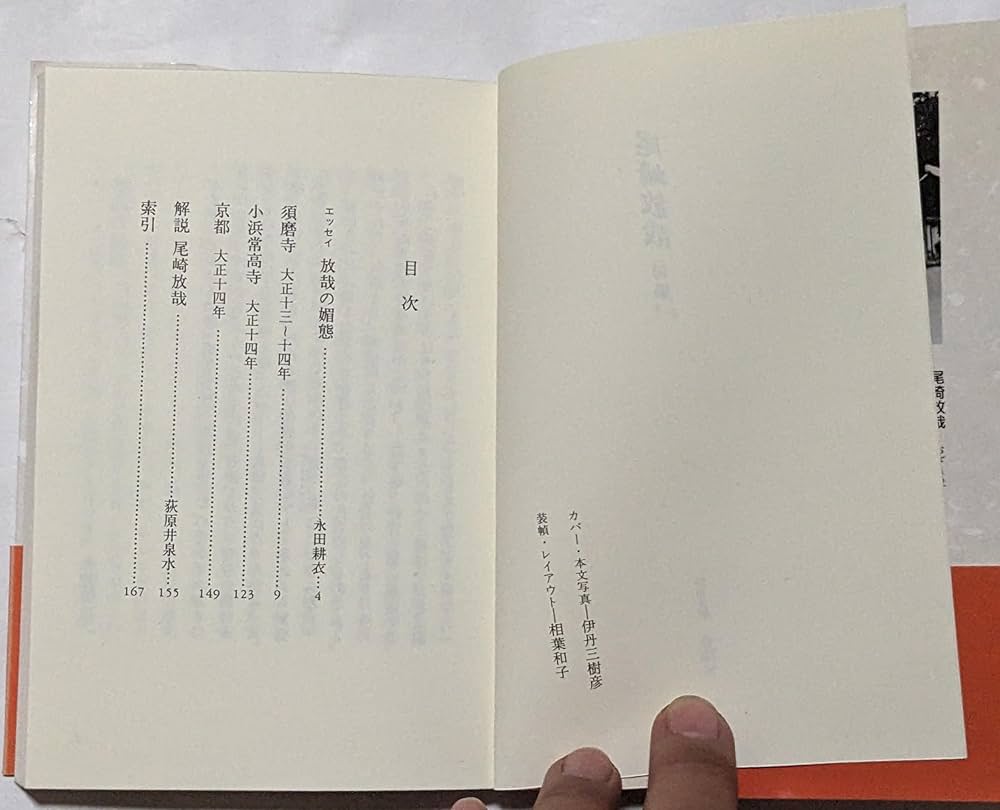 カバー・本文写真―伊丹三樹彦
装幀・レイアウト―相葉和子
目次
エッセイ 放哉の媚態……永田耕衣…4
須磨寺 大正十三〜十四年……9
小浜常高寺 大正十四年……123
京都 大正十四年……149
解説 尾崎放哉……荻原井泉水…155
索引……167
尾崎放哉